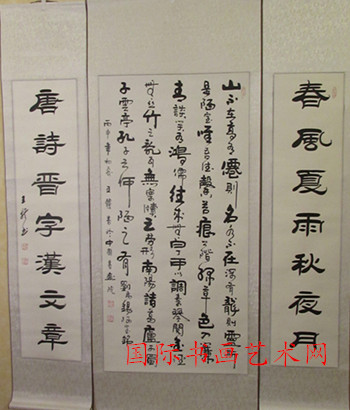 春風夏雨秋夜月
山不在高有僊則名水不在深有龍則靈斯
是陋室唯吾德馨苔痕上階綠草色入簾
青談笑有鴻儒往來無白丁可以調素琴閱金經
無絲竹之亂耳無案牘之勞形南陽諸葛廬西蜀
子雲亭孔子云何陋之有 劉禹錫陋室銘
唐詩晋字漢文章
国际书画艺术网